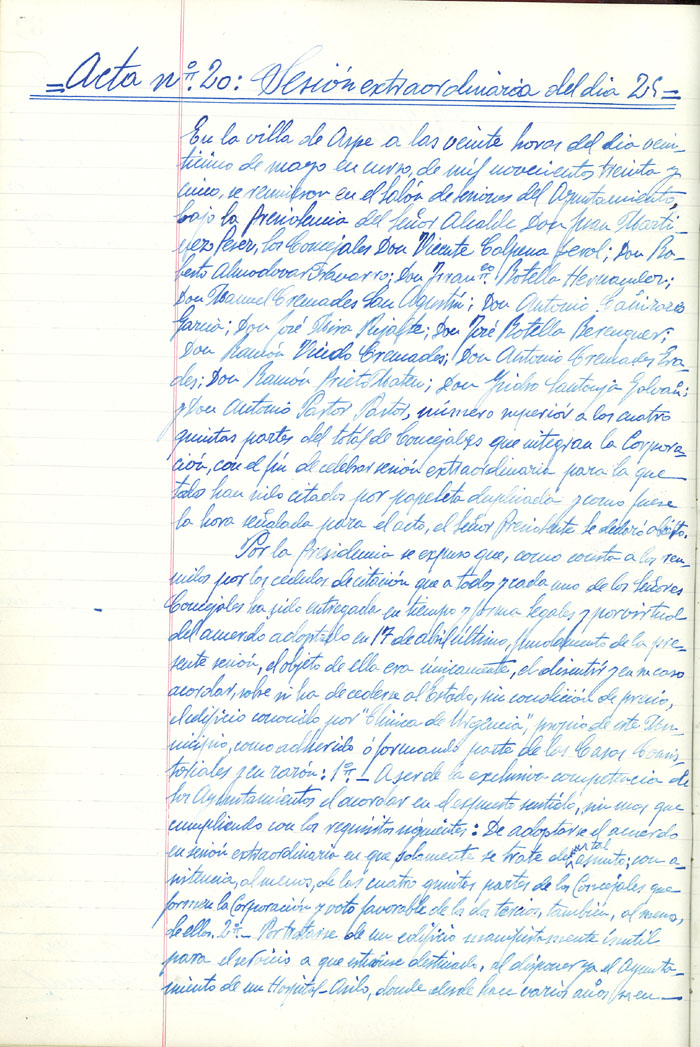 = Acta nº. 20: Sesión extraordinaria del dia 25 =
En la villa de Aspe a las veinte horas del dia vein-
ticinco de mayo en curso, de mil novecientos treinta y
cinco, se reunieron en el salón de sesiones del Ayuntamiento,
bajo la Presidencia del Señor Alcalde Don Juan Marti-
nez Perez, los Concejales Don Vicente Calpena Cerol; Don Ro-
berto Almodovar Navarro; Don Franco. Botella Hernandez;
Don Manuel Cremades San Agustín; Don Antonio Cañizares
Garcia; Don José Mira Pujalte; Don José Botella Berenguer;
Don Ramón Vicedo Cremades; Don Antonio Cremades Pra-
des; Don Ramón Prieto Mateu; Don Ysidro Santonja Galvañ;
y Don Antonio Pastor Pastor, número superior a los cuatro
quintas partes del total de Concejales que integran la Corpora-
ción, con el fin de celebrar sesión extraordinaria para la que
todos han sido citados por papeleta duplicada y como fuese
la hora señalada para el acto, el Señor Presidente la declaró abierto.
Por la Presidencia se expuso que, como consta a los reu-
nidos por las cedulas de citación que a todos y cada uno de los Señores
Concejales ha sido entregada en tiempo y forma legales y por virtud
del acuerdo adoptado en 17 de abril último, fundamento de la pre-
sente sesión, el objeto de ella era unicamente, el discutir y en su caso
acordar, sobre si ha de cederse al Estado, sin condición de precio,
el edificio conocido por "Clinica de Urgencia", propio de este Mu-
nicipio, como adherido ó formando parte de las Casas Consis-
toriales y en razón: 1º.- A ser de la exclusiva competencia de
los Ayuntamientos el acordar en el expuesto sentido, sin mas que
cumpliendo con los requisitos siguientes: De adoptarse el acuerdo
en sesión extraordinaria en que solamente se trate de tal asunto; con a-
sistencia, al menos, de las cuatro quintas partes de los Concejales que
forman la Corporación y voto favorable de las dos tercios, tambien, al menos,
de ellos. 2º.- Por tratarse de un edificio manifiestamente inutil
para el servicio a que estuviese destinado, al disponer ya el Ayunta-
miento de un Hospital-Asilo, donde desde hace varios años se en-